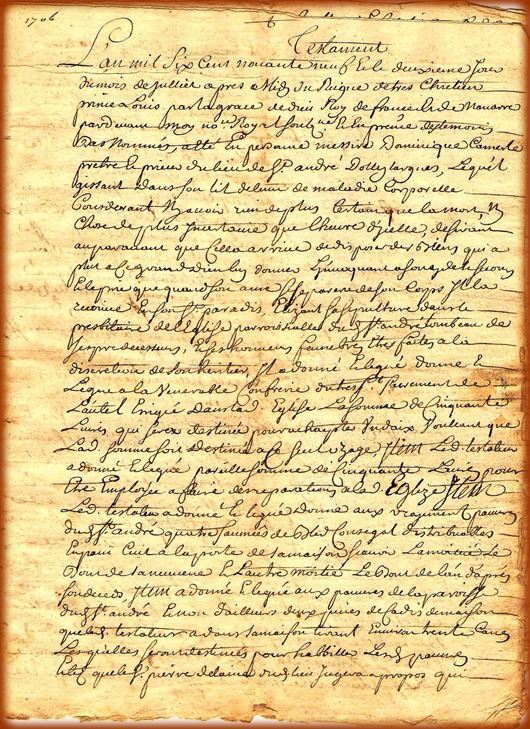 1706
Testament
L'an mil Six Cent nonante neuf & le deuxieme Jour
du mois de Juillet apres Midy du Reigne de tres Chretien
prince Louis par la grace de dieu Roy de france & de Navarre
pardevant moy no.re Royal & en presence des temoins
bas nommes, a esté En personne messire Dominique
prebtre & prieur du lieu de St. andré Dolleyrargues, Lequel
gissant dans son lit detenu de maladie Corporelle
Considerant N'avoir rien de plus Certain que la mort, Ny
Chose de plus Incertaine que l'heure d'Icelle, desirant
auparavant que Cella arrive de disposer des biens qui a
pleu a Ce grand dieu luy donner
& le prie que quand son ame sera separée de son Corps Il la
recoive En son St. paradis, Elizant sa sepulture dans le
presbitaire de L'Eglise parroissielle dud. St. andré tombeau de
ses predecesseurs, & ses honneurs funebres Etre faites a la
discretion de son heritier, Il a donné & legué donne &
Legue a la Venerable Confrerie du tres St. Sacrement de
L'autel Erigée dans lad. Eglise La somme de Cinquante
Livres, qui sera destinée pour
Lad. somme soit destinée a Ce seul Uzage Item Led. testateur
a donné & legué pareille somme de Cinquante Livres pour
Etre Employée a faire des reparations a lad. Eglize Item
Led. testateur a donné & legué donne aux vrayment pauvres
dud. St. andré quatre saumées de Bled Consegal distribuables
En pain Cuit a la porte de sa maison, scavoir La moitié Le
Bout de sa neuvaine & Lautre moitié Le Bout de L'an d'apres
son deceds Item a donné & legué aux pauvres de la parroisse
dud. St. andré & non d'ailleurs deux pieces de Cadis de maison
que led. testateur a dans sa maison tirant Environ trente Canes
Lesquelles seront destinées pour habbiller Lesd. pauvres
& Ce que le Sr. pierre dud. lieu Jugera a propos qui